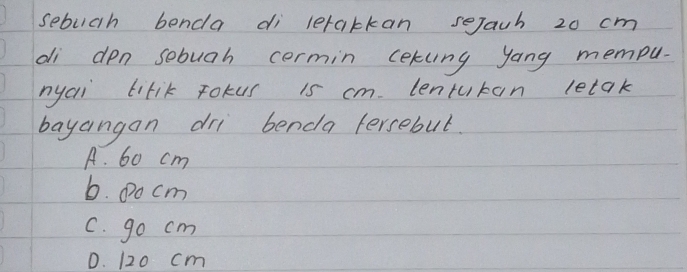 sebuah benda di letakkan sejauh 20 cm
di dpn sebuah cermin cekung yang mempu-
nyai titik Fokus 15 cm. tentukan letak
bayangan dri benda tersebut.
A. 60 cm
b. 80 cm
C. 90 cm
D. 120 cm